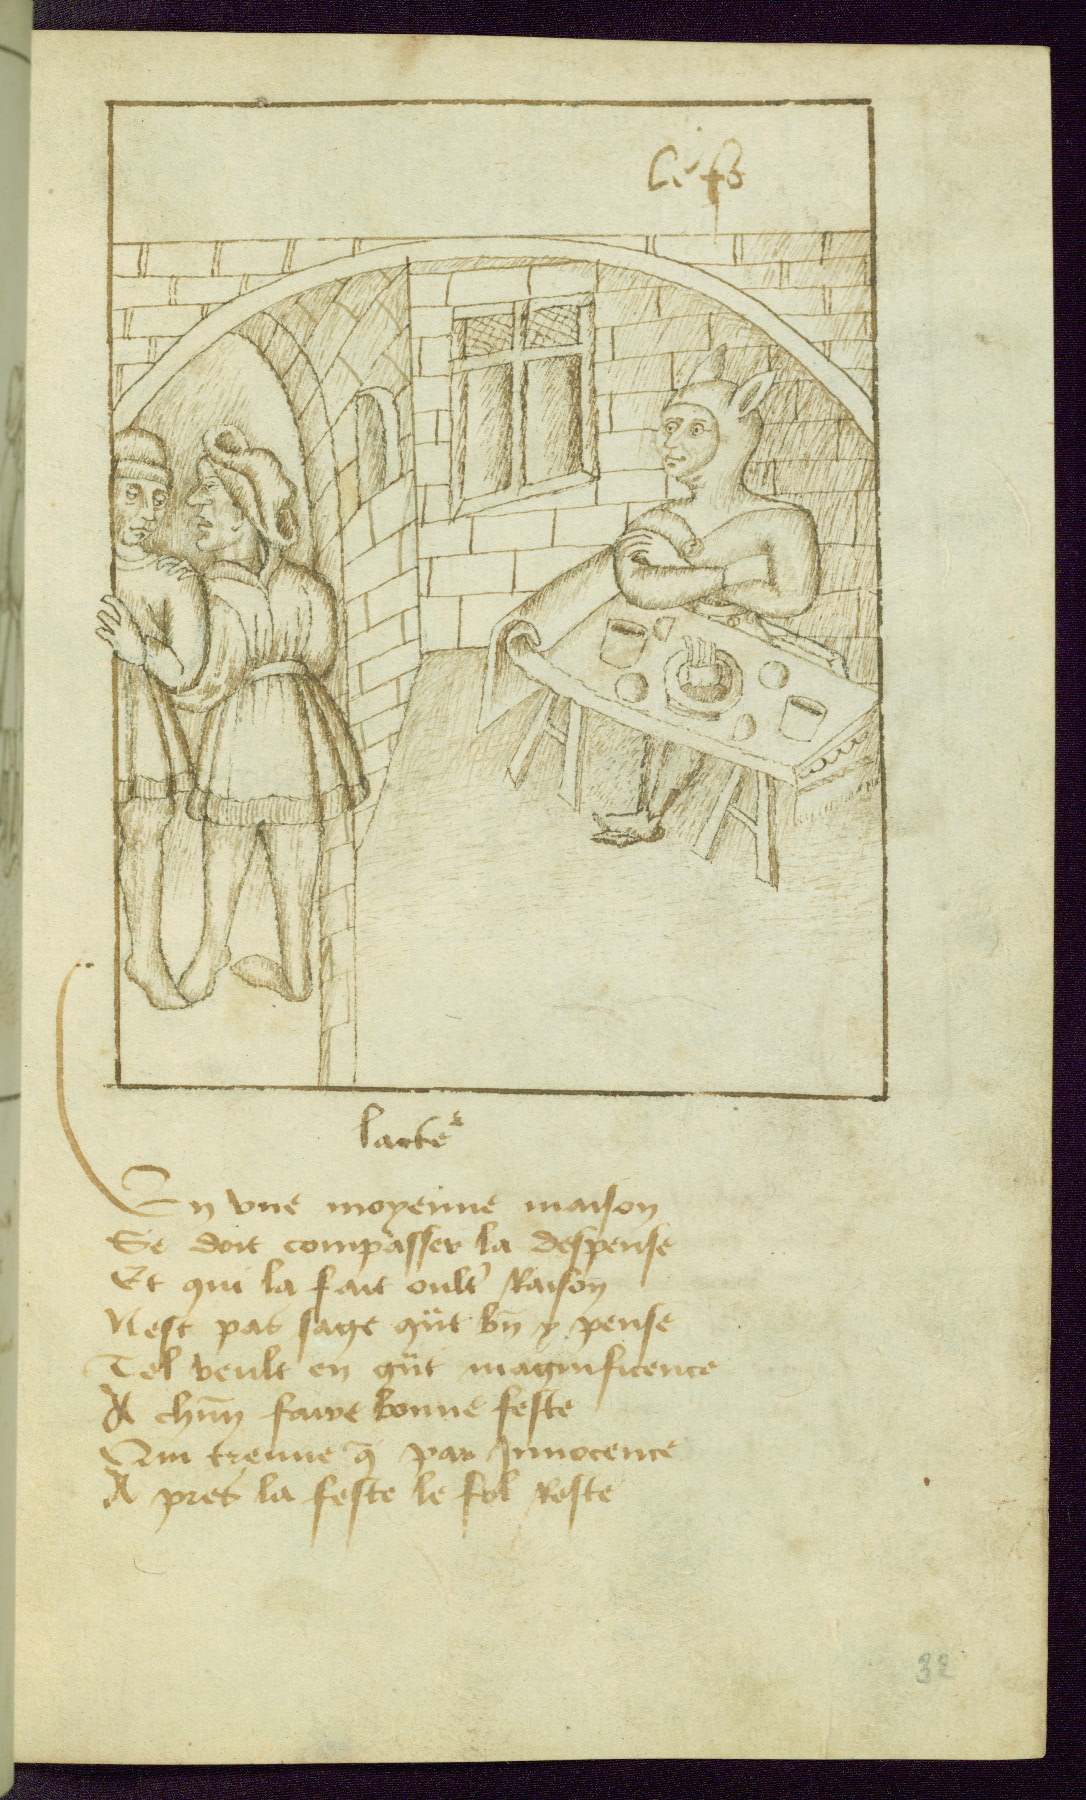 lacte᷒
En vne moyenne maison
Se doit compasser la despense
Et qui la fait oult' Raison
Nest pas sage q̃nt bn̄ y pense
Tel veult en g̃nt magnificence
A chūn faire bonne feste
Qui treuue q̄ par Innocence
A pres la feste le fol Reste
32